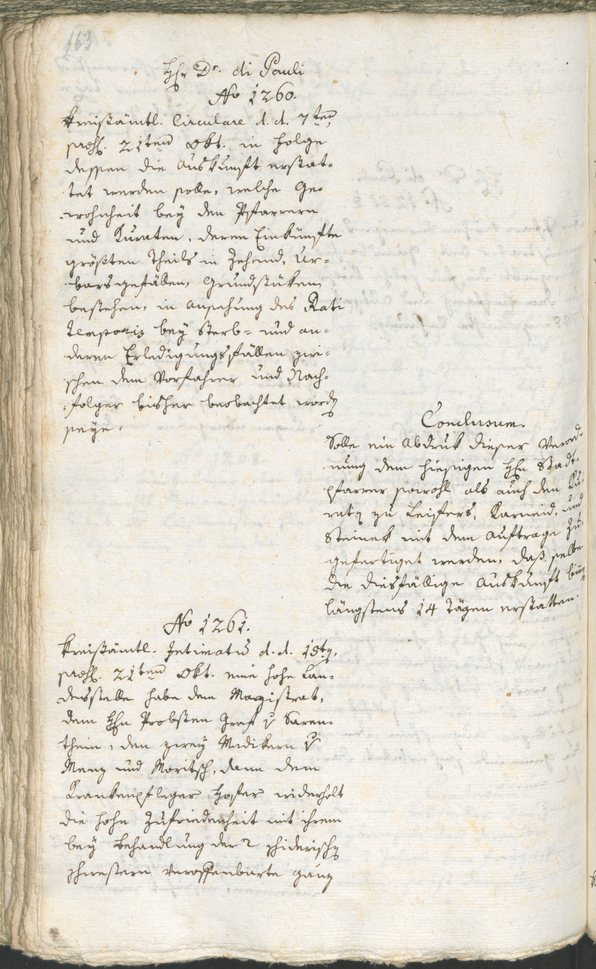 163
Hr Dr. di Pauli
No 1260.
Kreißämtl. Circulare d. d. 7ten
praes. 21ten Okt. in Folge
dessen die Auskunft erstat-
tet werden solle, welche Ge-
wohnheit bey den Pfarrern
und Kuraten, deren Einkünfte
größten Theils in Zehend, Ur-
bars gefällen, Grundstücken
bestehen, in Ansehung des Rati
Temporis bey Sterb- und an-
deren Erledigungsfällen zwi-
schen dem Vorfahrer und Nach-
folger bisher beobachtet worden
seye.
Conclusum.
Solle ein Abdruk dieser Verord-
nung dem hiesigen Hrn Stadt-
pfarrer sowohl als auch den Ku-
raten zu Leifers, Karneid, und
Steinek mit dem Auftrage zu-
gefertiget werden, daß selbe
die diesfällige Auskunft binn
längstens 14 Tägen erstatten.
No 1261.
Kreißämtl. Intimatum d. d. 15ten,
praes. 21ten Okt. eine hohe Lan-
desstelle habe dem Magistrat,
dem Hrn Probsten Graf v Saren-
thein, den zwey Medikern v
Menz und Moritsch, dann dem
Krankenpfleger Hofer widerholt
die hohe Zufriedenheit mit ihrem
bey Behandlung der 2
schwestern veroffenbarte ganz